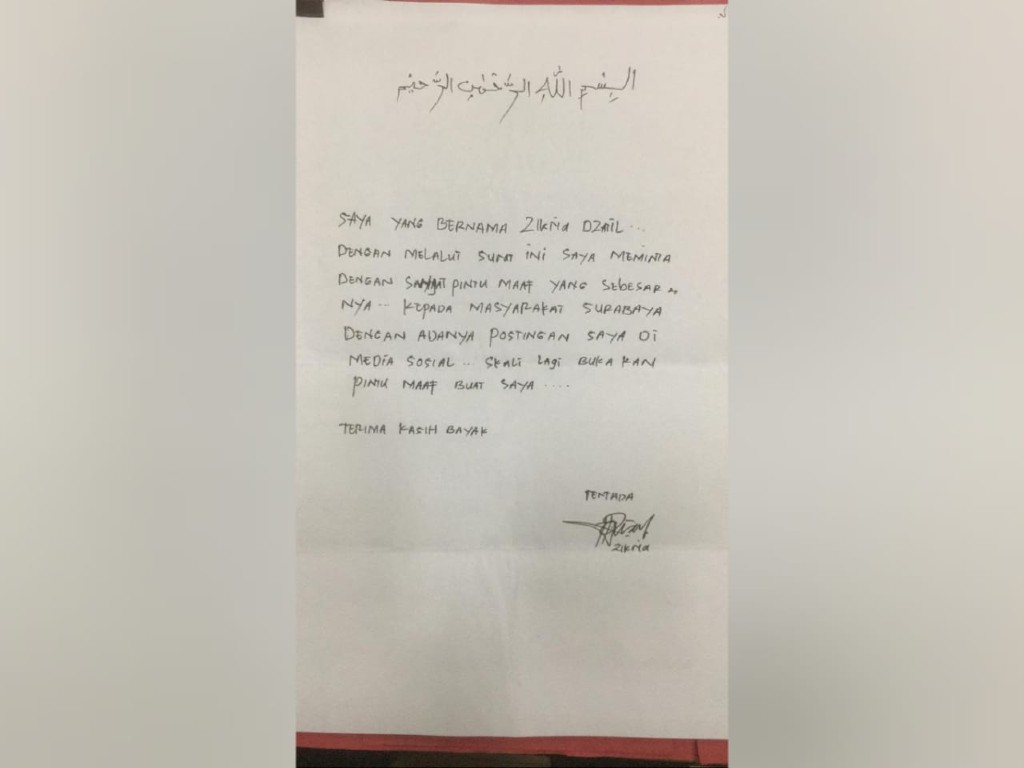 السِْمِ اللّٰهِ الرَّحْمٰنِ الرَّحِيْمِ
SAYA YANG BERNAMA Zikria DZATIL...
DENGAN MELALUI SURAT INI SAYA MEMINTA
DENGAN SANGAT PINTU MAAF YANG SEBESAR"
NYA.. KEPADA MASYARAKAT SURABAYA
DENGAN ADANYA POSTINGAN SAYA DI
MEDIA SOSIAL.. SKALI LAGI BUKA KAN
PINTU MAAF BUAT SAYA....
TERIMA KASIH BAYAK
TENTADA
Zikria